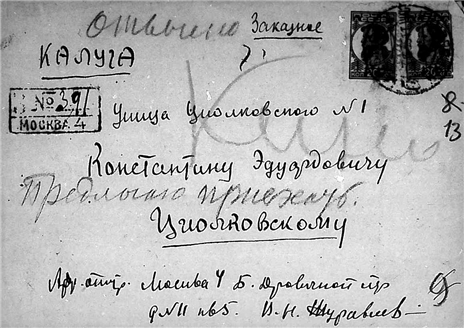 Отвечено Заказное
КАЛУГА
№ 391
МОСКВА 4
Улица Циолковского N 1
Константину Эдуардовичу
Предлагаю приехать.
Циолковскому
Москва 4 Б. Дровяной пер
д N 11 кв 5. И. Н. Журавлев